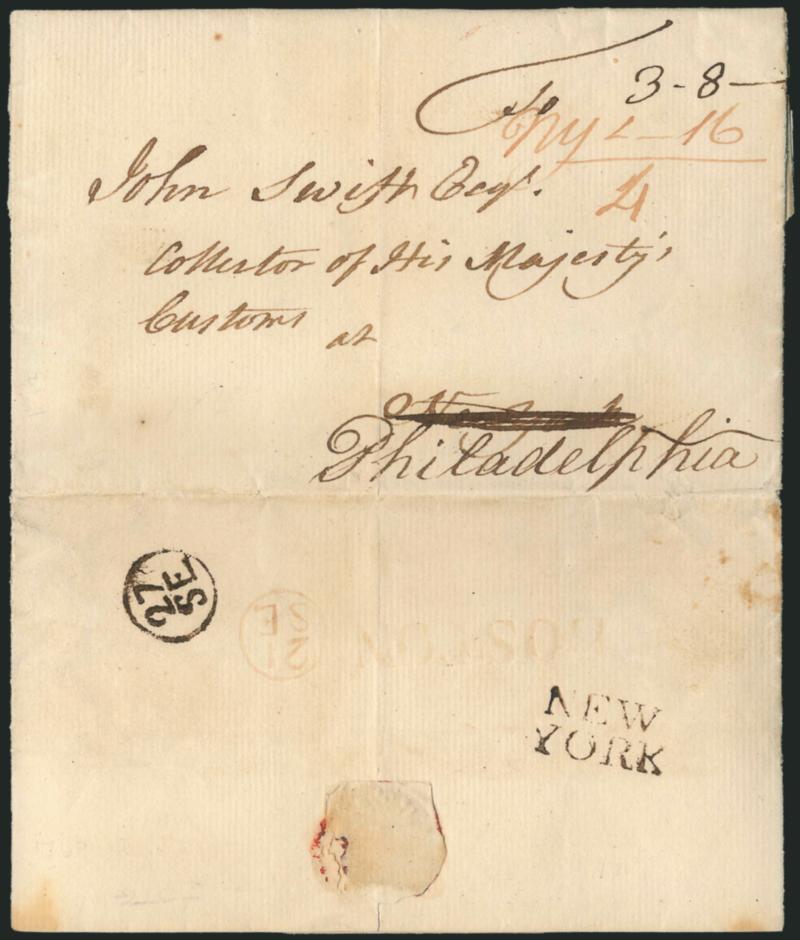 To
3-8-
John Swift Esqr.
Collector of His Majesty's
Customs at
Philadelphia
27
SE
21
SE
BOSTON
NEW
YORK
4